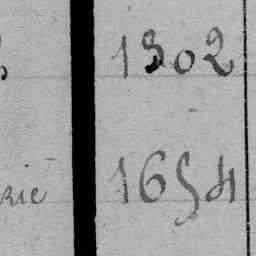 1302
rie 1654